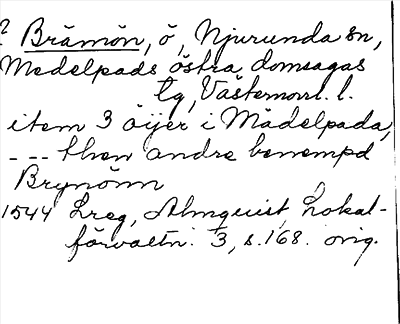 ? Brämön, ö, Njurunda sn,
Medelpads östra domsagas
tg, Västernorrl. l.
item 3 öijer i Mädelpada,
--- then andre benempd
Brynönn
1544 Lreg, Almquist, Lokal-
förvaltn. 3, s. 168. orig.